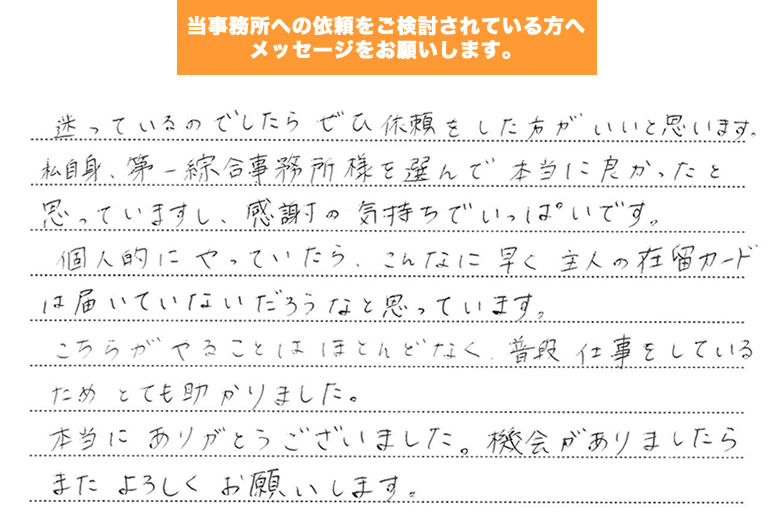 当事務所への依頼をご検討されている方へ
メッセージをお願いします。
迷っているのでしたら ぜひ 依頼をした方がいいと思います。
私自身、第一綜合事務所様を選んで 本当に良かったと
思っていますし、感謝の気持ちでいっぱいです。
個人的に やっていたら、こんなに 早く 主人の在留カード
は届いていないだろうなと思っています。
こちらがやることは ほとんどなく、普段 仕事をしている
ため とても助かりました。
本当に ありがとうございました。機会がありましたら
また よろしく お願いします。